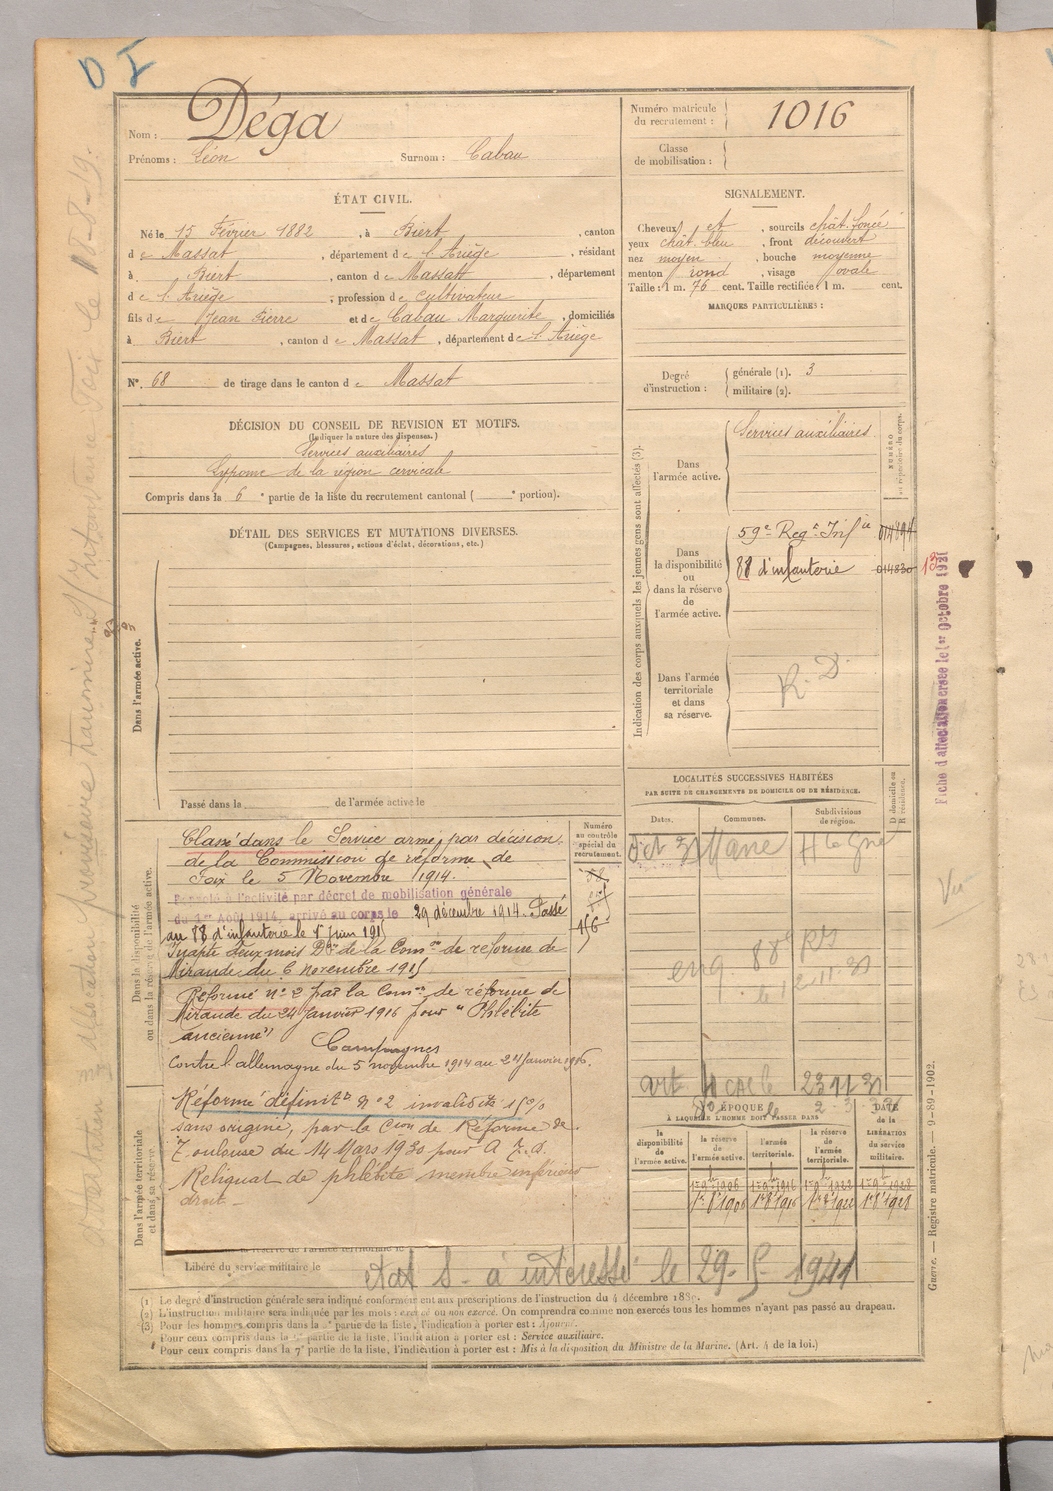 Nom : Déga
Prénoms : Léon Surnom : Cabau
ÉTAT CIVIL.
Né le 15 Février 1882, à Biert, canton
de Massat, département de l'Ariège, résidant
à Biert, canton de Massat, département
de l'Ariège, profession de cultivateur
fils de Jean Pierre et de Cabau Marguerite, domiciliés
à Biert, canton de Massat, département de l'Ariège
N°. 68 de tirage dans le canton de Massat
DÉCISION DU CONSEIL DE REVISION ET MOTIFS.
(Indiquer la nature des dispenses.)
Services auxiliaires
Lypome de la région cervicale
Compris dans la 6e partie de la liste du recrutement cantonal ( e portion).
DÉTAIL DES SERVICES ET MUTATIONS DIVERSES.
(Campagnes, blessures, actions d'éclat, décorations, etc.)
Dans l'armée active.
Passé dans la de l'armée active le
Dans la disponibilité
ou dans la réserve de l'armée active.
Numéro
au contrôle
spécial du
recrutement.
156
Classé dans le Service armé par décision
de la Commission de réforme de
Foix le 5 Novembre 1914.
Rappelé à l'activité par décret de mobilisation générale
du 1er Août 1914, arrivé au corps le 29 décembre 1914. Passé
au 88 d'infanterie le 1r juin 191
Inapte deux mois Don de la Comon de reforme de
Mirande du 6 novembre 1915
Réformé n° 2 par la Comon de réforme de
Mirande du 24 janvier 1916 pour "Phlébite
ancienne"
Campagnes
Contre l'allemagne du 5 novembre 1914 au 24 Janvier 1916.
Réformé définitt n° 2 invalidité 15%
sans origine, par la Cion de Réforme de
Toulouse du 14 Mars 1930 pour
Reliquat de phlébite membre inférieur
droit
Dans l'armée territoriale
et dans sa réserve
la réserve de l'armée territoriale le
Libéré du service militaire le
etat S. à interessé le 29. 5. 1941
Numéro matricule
du recrutement : 1016
Classe
de mobilisation :
SIGNALEMENT.
Cheveux et, sourcils chât. foncé
yeux chât. bleu, front découvert
nez moyen, bouche moyenne
menton rond, visage ovale
Taille : 1 m. 76 cent. Taille rectifiée 1 m. cent.
MARQUES PARTICULIÈRES :
Degré
d'instruction :
générale (1). 3
militaire (2).
Indication des corps auxquels les jeunes gens sont affectés (3).
NUMÉRO
au répertoire du corps.
Dans
l'armée active.
Services auxiliaires
Dans
la disponibilité
ou
dans la réserve
de
l'armée active.
59e Regt Infie
88 d'infanterie 014830
13
Dans l'armée
territoriale
et dans
sa réserve.
R. D.
LOCALITÉS SUCCESSIVES HABITÉES
PAR SUITE DE CHANGEMENTS DE DOMICILE OU DE RÉSIDENCE.
Dates. Communes. Subdivisions
de région.
D domicile ou
R résidence.
Oct 31 Mane Hte Gne
88e
ÉPOQUE
À LAQUELLE L'HOMME DOIT PASSER DANS
DATE
de la
LIBÉRATION
du service
militaire.
la
disponibilité
de l'armée active.
la réserve
de
l'armée active.
l'armée
territoriale.
la réserve
de
l'armée
territoriale.
1r 9bre 1906 1r 9bre 1916 1r 9bre 1922 1r 9bre 1928
1r 8bre 1906 1r 8bre 1916 1r 8bre 1922 1r 8bre 1928
(1) Le degré d'instruction générale sera indiqué conformément aux prescriptions de l'instruction du 4 décembre 1889.
(2) L'instruction militaire sera indiquée par les mots : exercé ou non exercé. On comprendra comme non exercés tous les hommes n'ayant pas passé au drapeau.
(3) Pour les hommes compris dans la partie de la liste, l'indication à porter est : Ajourné.
Pour ceux compris dans la partie de la liste, l'indication à porter est : Service auxiliaire.
Pour ceux compris dans la 7e partie de la liste, l'indication à porter est : Mis à la disposition du Ministre de la Marine. (Art. 4 de la loi.)
Guerre. — Registre matricule. — 9-89-1902.
Fiche d'affectation versée le 1er Octobre 1931
Vu